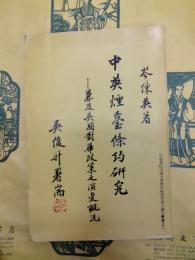 岑練英著
中英煙臺條約研究
——兼及英國對華政策之演變概況
吳俊升署耑